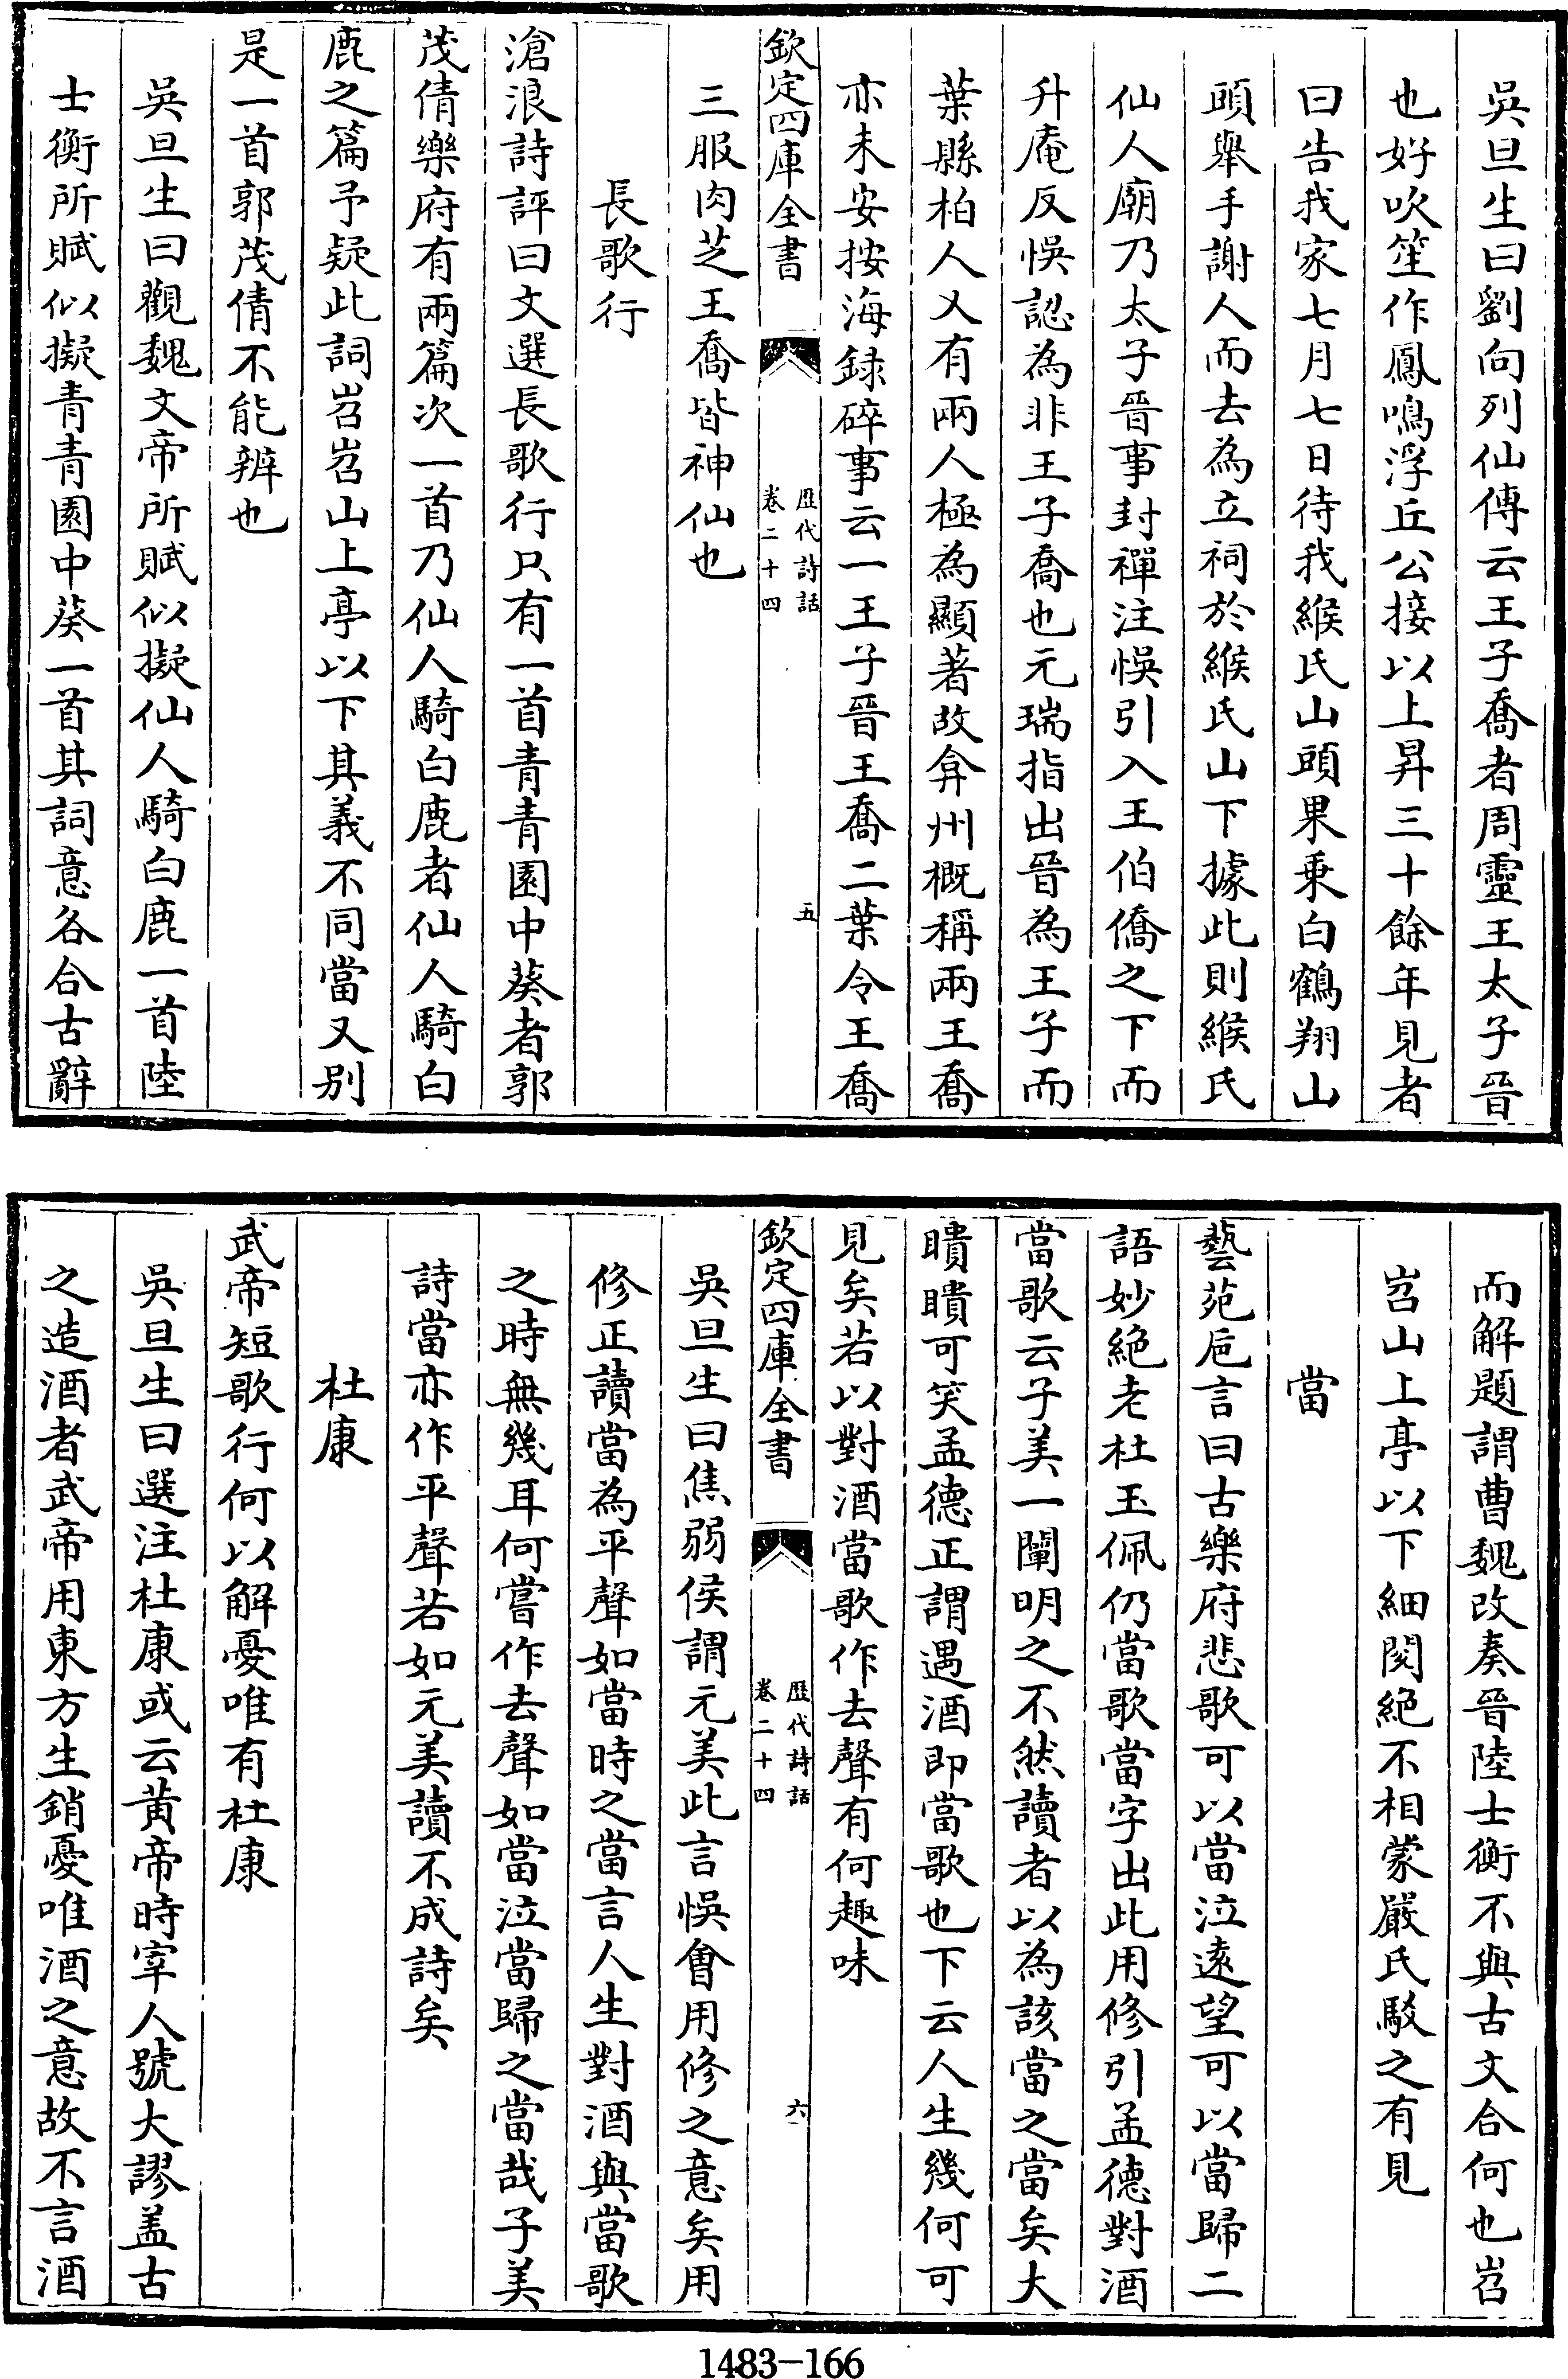 吳旦生曰劉向列仙傳云王子喬者周靈王太子晉
也好吹笙作鳳鳴浮丘公接以上昇三十餘年見者
曰告我家七月七日待我緱氏山頭果乘白鶴翔山
頭舉手謝人而去為立祠於緱氏山下據此則緱氏
仙人廟乃太子晉事封禪注悞引入王伯僑之下而
升庵反悞認為非王子喬也元瑞指出晉為王子而
葉縣柏人又有兩人極為顯著故弇州概稱兩王喬
亦未安按海録碎事云一王子晉王喬二葉令王喬
欽定四庫全書
歴代詩話
卷二十四
五
三服肉芝王喬皆神仙也
長歌行
滄浪詩評曰文選長歌行只有一首青青園中葵者郭
茂倩樂府有兩篇次一首乃仙人騎白鹿者仙人騎白
鹿之篇予疑此詞岧岧山上亭以下其義不同當又别
是一首郭茂倩不能辨也
吳旦生曰觀魏文帝所賦似擬仙人騎白鹿一首陸
士衡所賦似擬青青園中葵一首其詞意各合古辭
而解題謂曹魏改奏晉陸士衡不與古文合何也岧
岧山上亭以下細閱絕不相蒙嚴氏駁之有見
當
藝苑巵言曰古樂府悲歌可以當泣遠望可以當歸二
語妙絕老杜玉佩仍當歌當字出此用修引孟德對酒
當歌云子美一闡明之不然讀者以為該當之當矣大
瞶瞶可笑孟德正謂遇酒即當歌也下云人生幾何可
見矣若以對酒當歌作去聲有何趣味
欽定四庫全書
歴代詩話
卷二十四
六
吳旦生曰焦弱侯謂元美此言悞會用修之意矣用
修正讀當為平聲如當時之當言人生對酒與當歌
之時無幾耳何嘗作去聲如當泣當歸之當哉子美
詩當亦作平聲若如元美讀不成詩矣
杜康
武帝短歌行何以解憂唯有杜康
吳旦生曰選注杜康或云黃帝時宰人號大謬盖古
之造酒者武帝用東方生銷憂唯酒之意故不言酒
1483-166